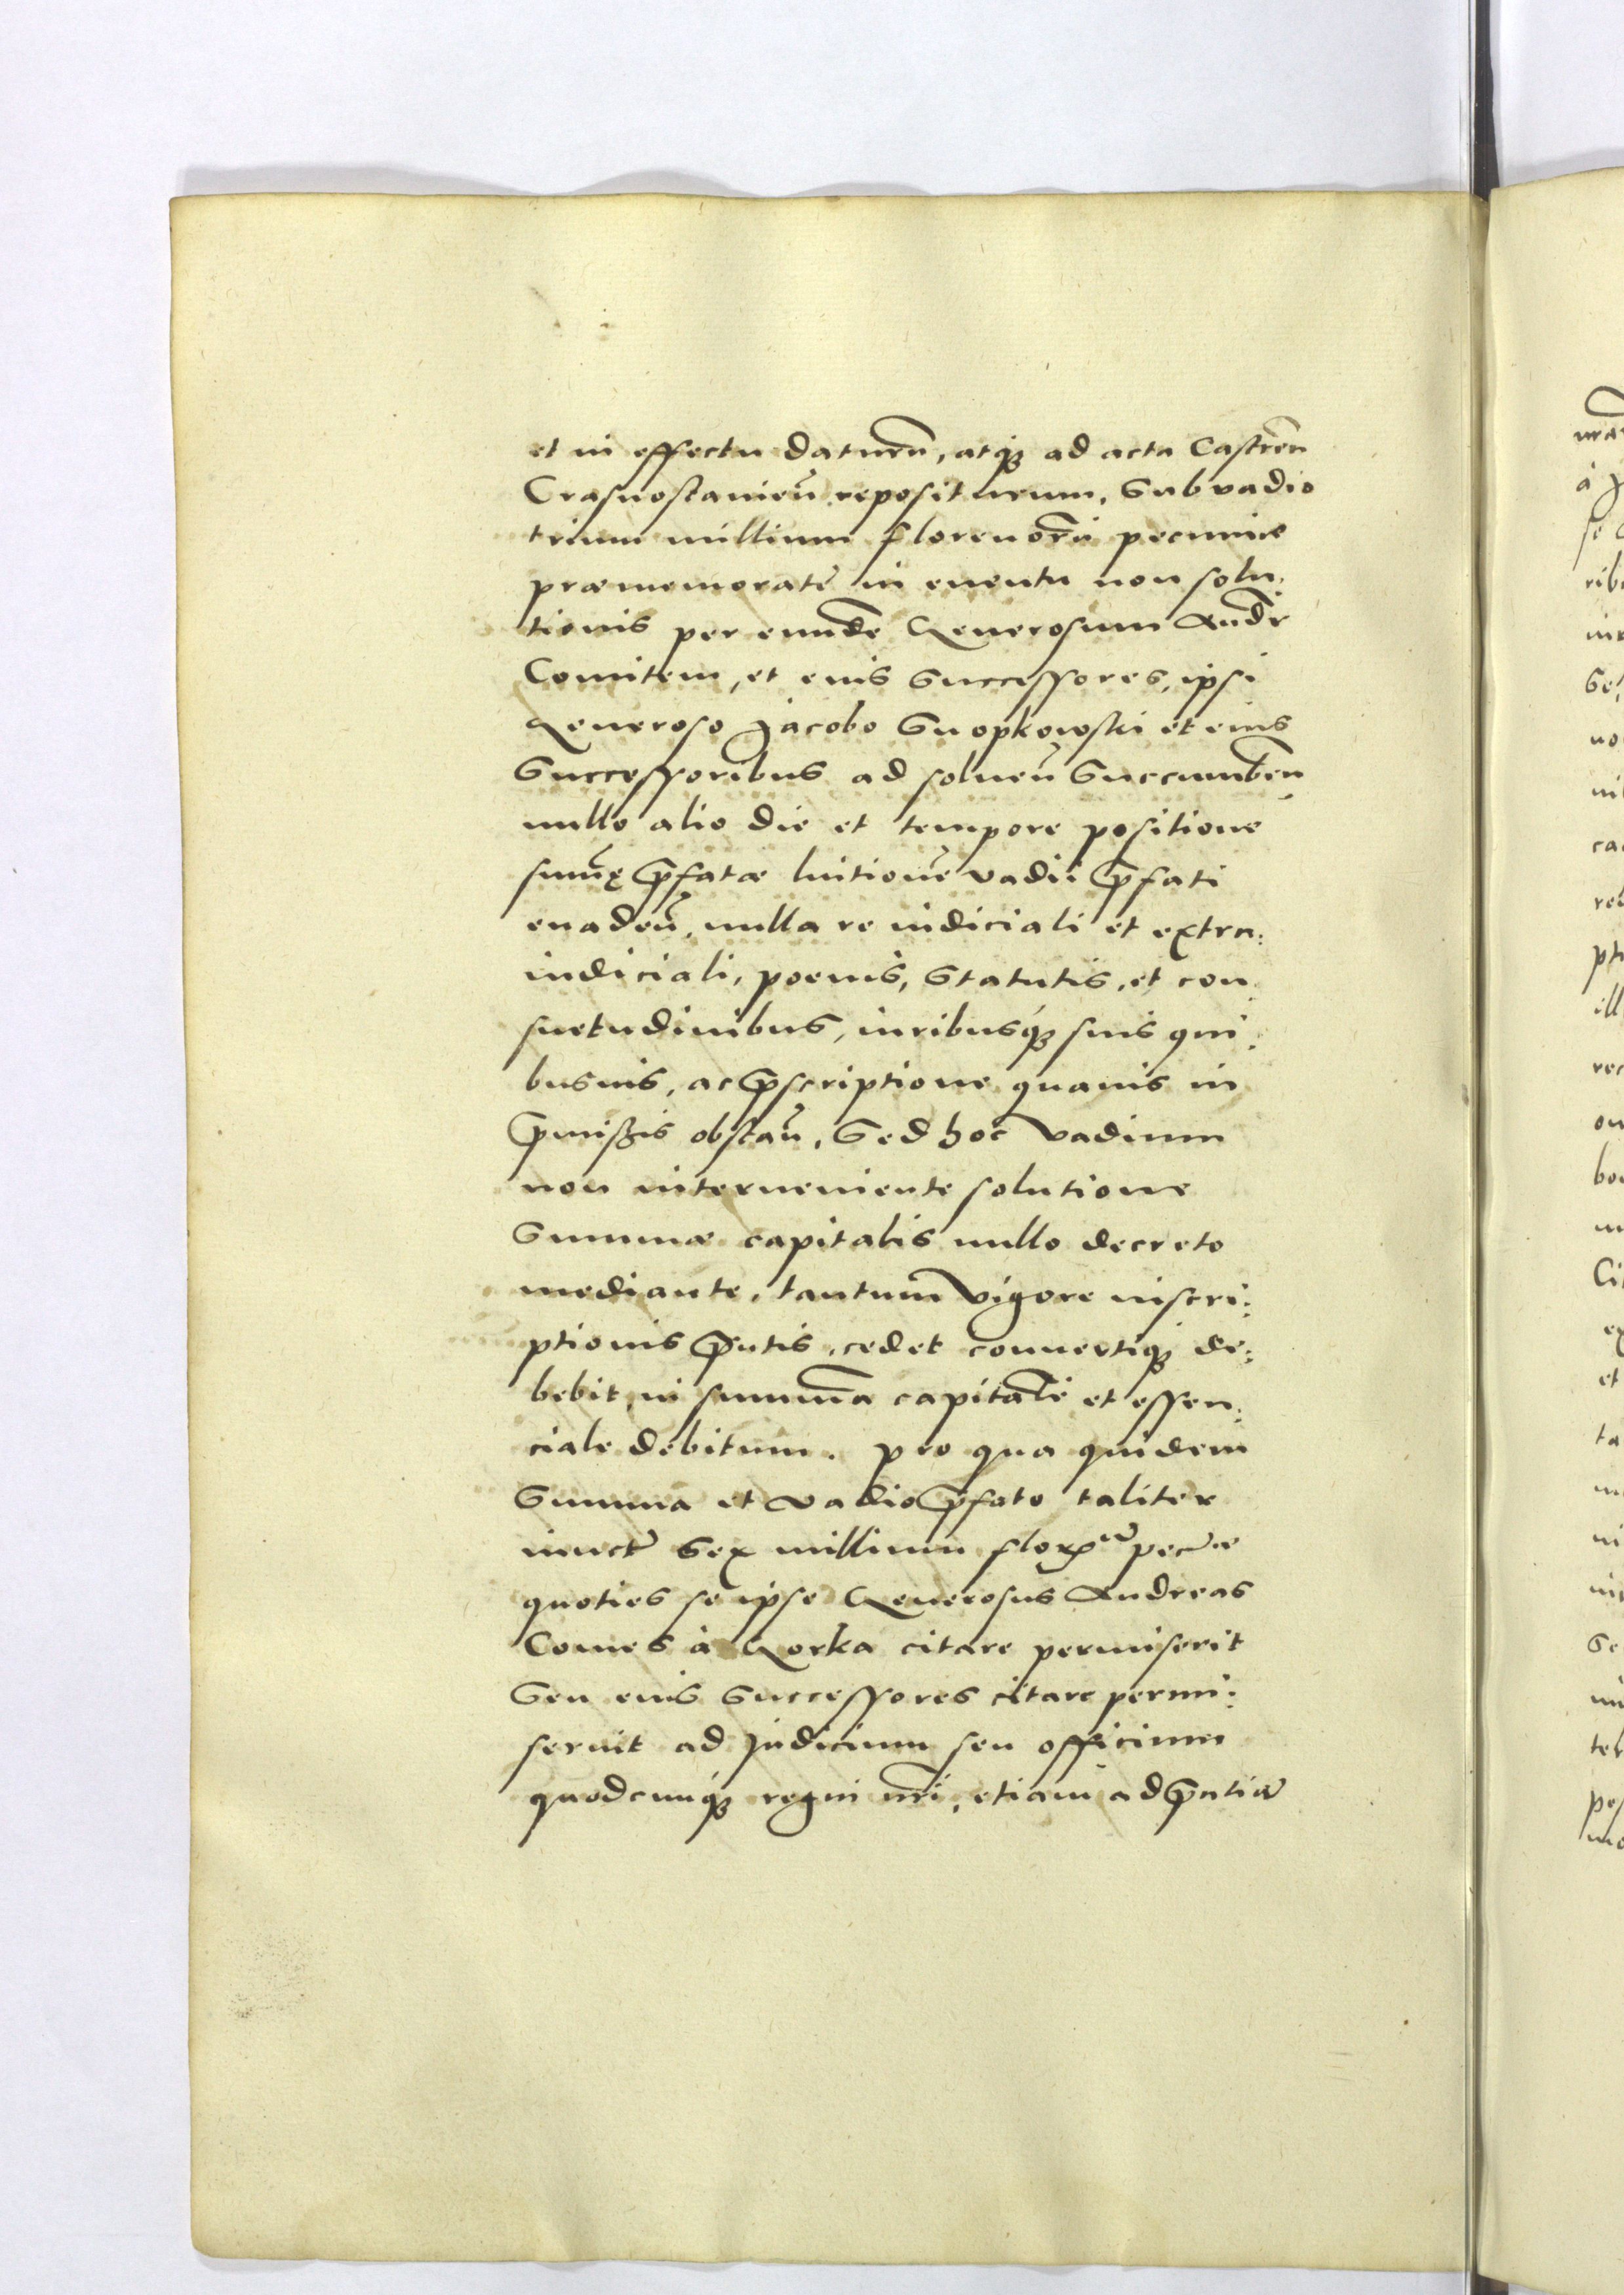 et in effectu daturũ, atq₃ ad acta Castreñ
Crasnostavieñ repositurum, Sub vadio
trium millium florenorũ pecuniæ
præmemorate in euentu non solu:
tionis per eundẽ Generosum Andr̃
Comitem, et eius Successores, ipsi
Generoso Jacobo Snopkowski et eius
Successoribus ad soluen̄ Succumben̄
nullo alio die et tempore positione
sum̄ę p̃fatæ luitione vadii p̃fati
euaden̄, nulla re iudiciali et extra:
iudiciali, poenis, Statutis, et con:
suetudinibus, iuribusq₃ suis qui:
busuis, ac p̃scriptione quauis in
p̃mißis obstan̄, Sed hoc vadium
non interueniente solutione
Summæ capitalis nullo decreto
mediante, tantum vigore inscri:
ptionis p̃ntis, cedet conuertiq₃ de:
bebit, in summã capitalẽ et essen:
ciale debitum. pro qua quidem
Summa et vadio p̃fato taliter
iunct̃ Sex millium flor. pecũæ
quoties se ipse Generosus Andreas
Comes à Gorka citare permiserit
Seu eius Successores citare permi:
serint ad Judicium seu officium
quodcunq₃ regni nr̃i, etiam ad p̃ntiã